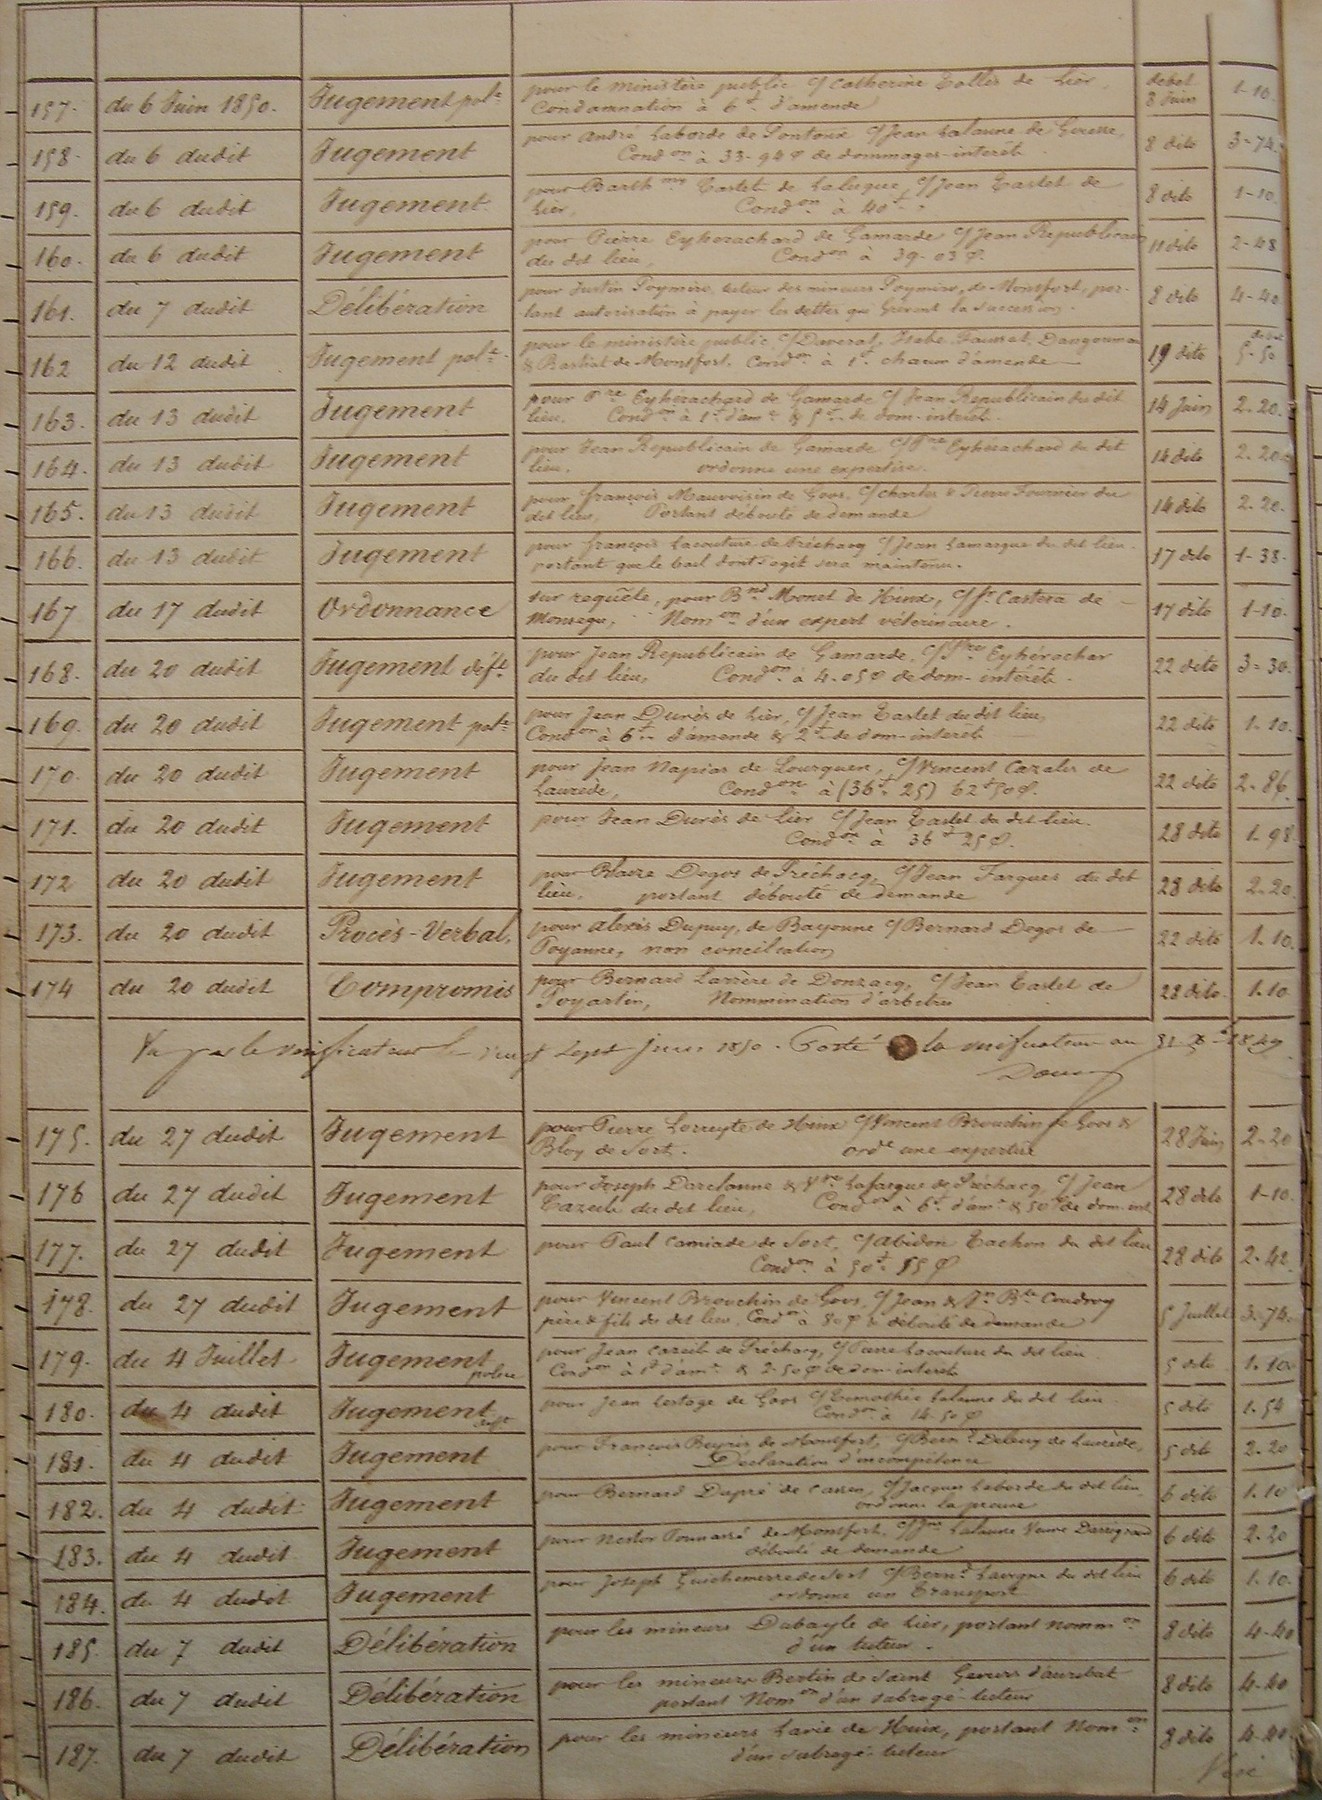 157. du 6 Juin 1850. Jugement pol.ce pour le ministère public c/ Catherine Tollis de Lier, debet 8 Juin 1-10.
Condamnation à 6f d'amende
158. du 6 dudit Jugement pour André Laborde de Pontoux c/ Jean Lalanne de Gousse, 8 dito 3-74.
Cond.on à 33-94 c de dommages-intérêt.
159. du 6 dudit Jugement pour Barth.my Tastet de Laluque, c/ Jean Tastet de 8 dito 1-10.
Lier, Cond.on à 40f
160. du 6 dudit Jugement pour Pierre Eyherachard de Gamarde c/ Jean Republicain 11 dito 2-48
du dit lieu, Cond.on à 39-03 c.
161. du 7 dudit Délibération pour Justin Poymiro tuteur des mineurs Poymiro, de Monsfort, por- 8 dito 4-40
tant autorisation à payer les dettes qui grèvent la succession.
162 du 12 dudit Jugement pol.ce pour le ministère public c/ Daverat, Isabe, Faussat, Dangoumau 19 dito debet 5-50
& Bastiat de Montfort. Cond.on à 1f chacun d'amende
163. du 13 dudit Jugement pour P.re Eyhérachard de Gamarde c/ Jean Republicain du dit 14 Juin 2-20.
lieu. Cond.on à 1f d'am.e & 5f de dom-intérêt.
164. du 13 dudit Jugement pour Jean Republicain de Gamarde c/ P.re Eyhérachard du dit 14 dito 2-20
lieu. ordonne une expertise.
165. du 13 dudit Jugement pour françois Mauvoisin de Goos, c/ Charles & Pierre Fournier du 14 dito 2-20.
dit lieu, Portant débouté de demande
166. du 13 dudit Jugement pour françois Lacouture de Préchacq c/ Jean Lamarque du dit lieu. 17 dito 1-38.
portant que le bail dont s'agit sera maintenu.
167 du 17 dudit Ordonnance sur requête, pour B.nd Monet de Hinx, c/ Castera de 17 dito 1-10.
Monsegu, Nom.on d'un expert véterinaire.
168. du 20 dudit Jugement déf.t pour Jean Republicain de Gamarde, c/ P.re Eyhérachar 22 dito 3-30.
du dit lieu, Cond.on à 4-05 c de dom-intérêt.
169. du 20 dudit Jugement pol.ce pour Jean Durès de Lier, c/ Jean Tastet du dit lieu, 22 dito 1-10.
Cond.on à 6f d'amende & 2f de dom-intérêt
170. du 20 dudit Jugement pour Jean Napias de Lourquen, c/ Vincent Cazalis de 22 dito 2-86.
Laurede, Cond.on à (36f 25) 62f 50 c.
171. du 20 dudit Jugement pour Jean Durès de Lier c/ Jean Tastet du dit lieu. 28 dito 1-98.
Cond.on à 36f 25 c.
172 du 20 dudit Jugement pour Blaize Degos de Préchacq, c/ Jean Fargues du dit 28 dito 2-20
lieu, portant débouté de demande
173. du 20 dudit Procès-Verbal, pour Alexis Dupuy, de Bayonne c/ Bernard Degos de 22 dito 1-10.
Poyanne, non conciliation
174 du 20 dudit Compromis pour Bernard Larrère de Donzacq, c/ Jean Tastet de 28 dito. 1-10
Poyartin, Nommination d'arbitres
Vu par le vérificateur le vingt sept juin 1850. la vérification au 31 1849
175. du 27 dudit Jugement pour Pierre Lorreyte de Hinx c/ Vincent Brouchin de Goos & 28 Juin 2-20
Bloy de Sort. ord.e une expertise
176 du 27 dudit Jugement pour Joseph Darclanne & Lafargue de Préchacq, c/ Jean 28 dito 1-10.
Cazeils du dit lieu, Cond.on à 6f d'am.e & 50f de dom-int
177. du 27 dudit Jugement pour Paul Camiade de Sort, c/ Abidon Tachon du dit lieu 28 dito 2-42.
Cond.on à 50f 55 c
178. du 27 dudit Jugement pour Vincent Brouchin de Goos, c/ Jean & J.n B.te Coudroy 5 Juillet 3-74.
père & fils du dit lieu, Cond.on à 80 c & débouté de demande
179. du 4 Juillet Jugement police pour Jean Cazeils de Préchacq, c/ Pierre Lacouture du dit lieu. 5 dito 1-10
Cond.on à 1f d'am.e & 2-50 c de dom-intérêts
180. du 4 dudit Jugement déft pour Jean Lestage de Goos c/ Timothée Lalanne du dit lieu. 5 dito 1-54
Cond.on à 14-50 c
181. du 4 dudit Jugement pour François Beyris de Montfort, c/ Bern.d Deleuy de Laurède, 5 dito 2-20
Déclaration d'incompétence
182. du 4 dudit Jugement pour Bernard Dupré de Cassen, c/ Jacques Laborde du dit lieu, 6 dito 1-10
ordonne la preuve
183. du 4 dudit Jugement pour Nestor Tounarié de Montfort, c/ Lalanne Veuve Darrigrand 6 dito 2-20
débouté de demande
184. du 4 dudit Jugement pour Joseph Guichemerre de Sort c/ Bern.d Lavigne du dit lieu 6 dito 1-10.
ordonne un Transport
185. du 7 dudit Délibération pour les mineurs Dubayle de Lier, portant nomm.on 8 dito 4-40
d'un tuteur.
186. du 7 dudit Délibération pour les mineurs Bertin de Saint Geours d'auribat 8 dito 4-40
portant Nom.on d'un subrogé-tuteur
187. du 7 dudit Délibération pour les mineurs Lavie de Hinx, portant Nom.on 8 dito 4-40.
d'un subrogé-tuteur